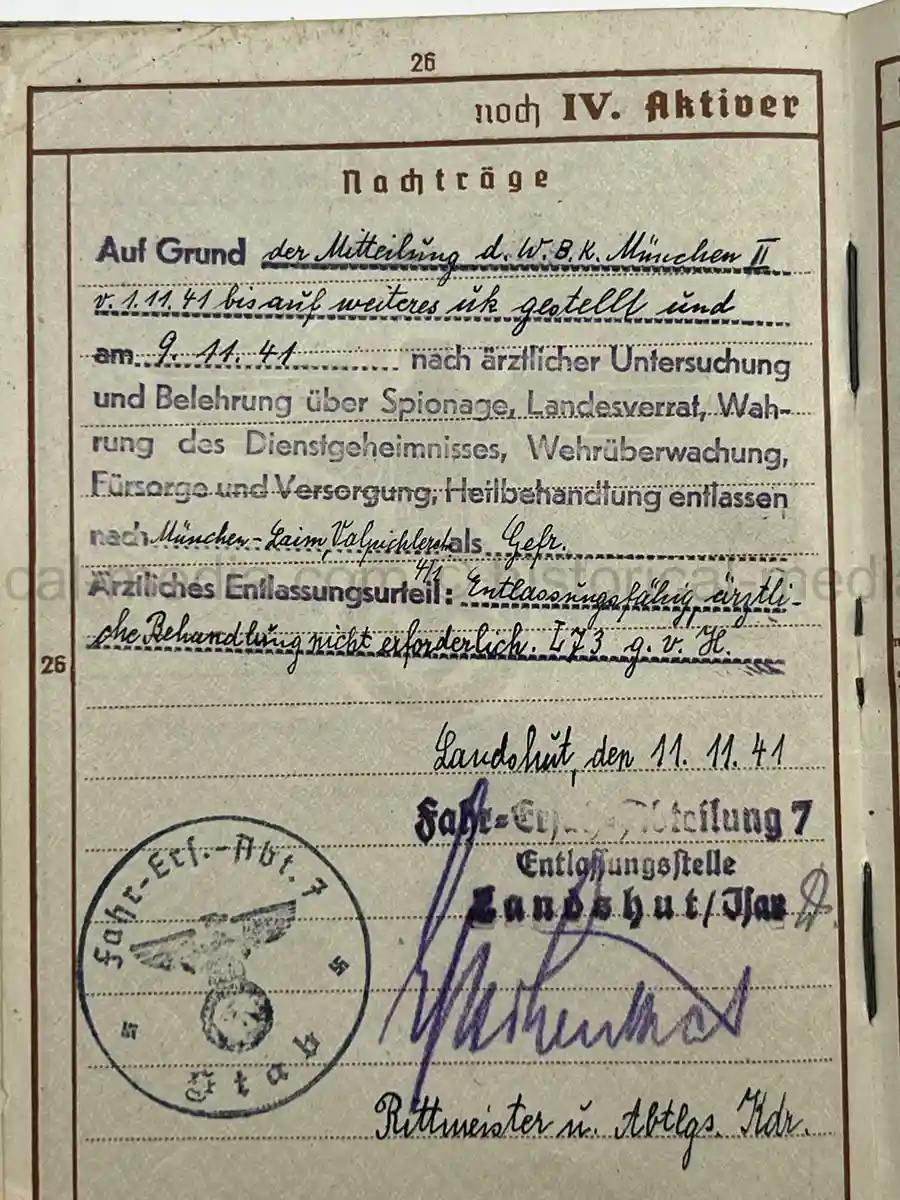 26
noch IV. Aktiver
Nachträge
Auf Grund der Mitteilung d. W.B.K. München II
v. 1.11.41 bis auf weiteres uk gestellt und
am 9.11.41 nach ärztlicher Untersuchung
und Belehrung über Spionage, Landesverrat, Wah-
rung des Dienstgeheimnisses, Wehrüberwachung,
Fürsorge und Versorgung, Heilbehandlung entlassen
nach München-Laim, Valpichlerstr. als Gefr.
4/1
Ärztliches Entlassungsurteil: Entlassungsfähig, ärztli-
che Behandlung nicht erforderlich. L73 g.v.H.
26
Landshut, den 11.11.41
Fahr-Ersatz-Abteilung 7
Entlassungsstelle
Landshut/Isar
Fahr-Ers.-Abt. 7
Stab
Rittmeister u. Abtlgs. Kdr.